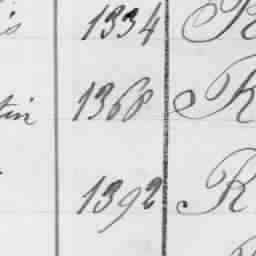 is 1334 R
tin 1368 R
1392 R